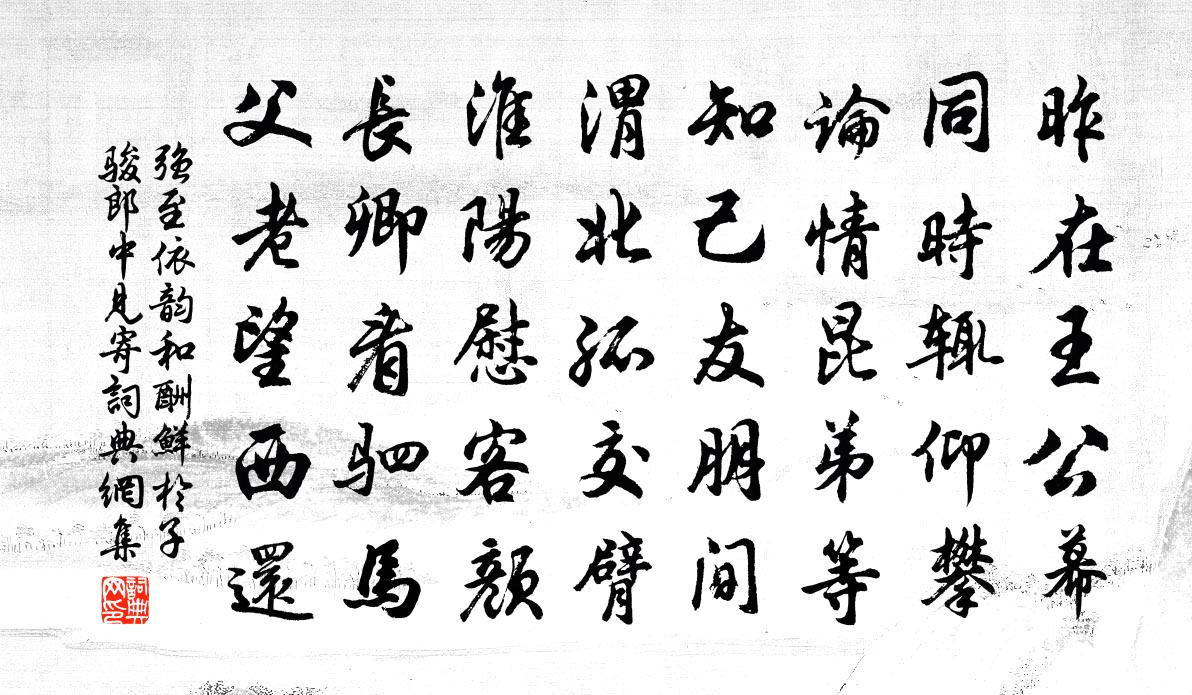 昨在王公幕
同時辄仰攀
論情昆弟等
知己友朋間
渭北孤交臂
淮陽慰客顔
長卿看驷馬
父老望西還
强至依韵和酬鮮於子
骏郎中見寄詞典網集
詞典网印